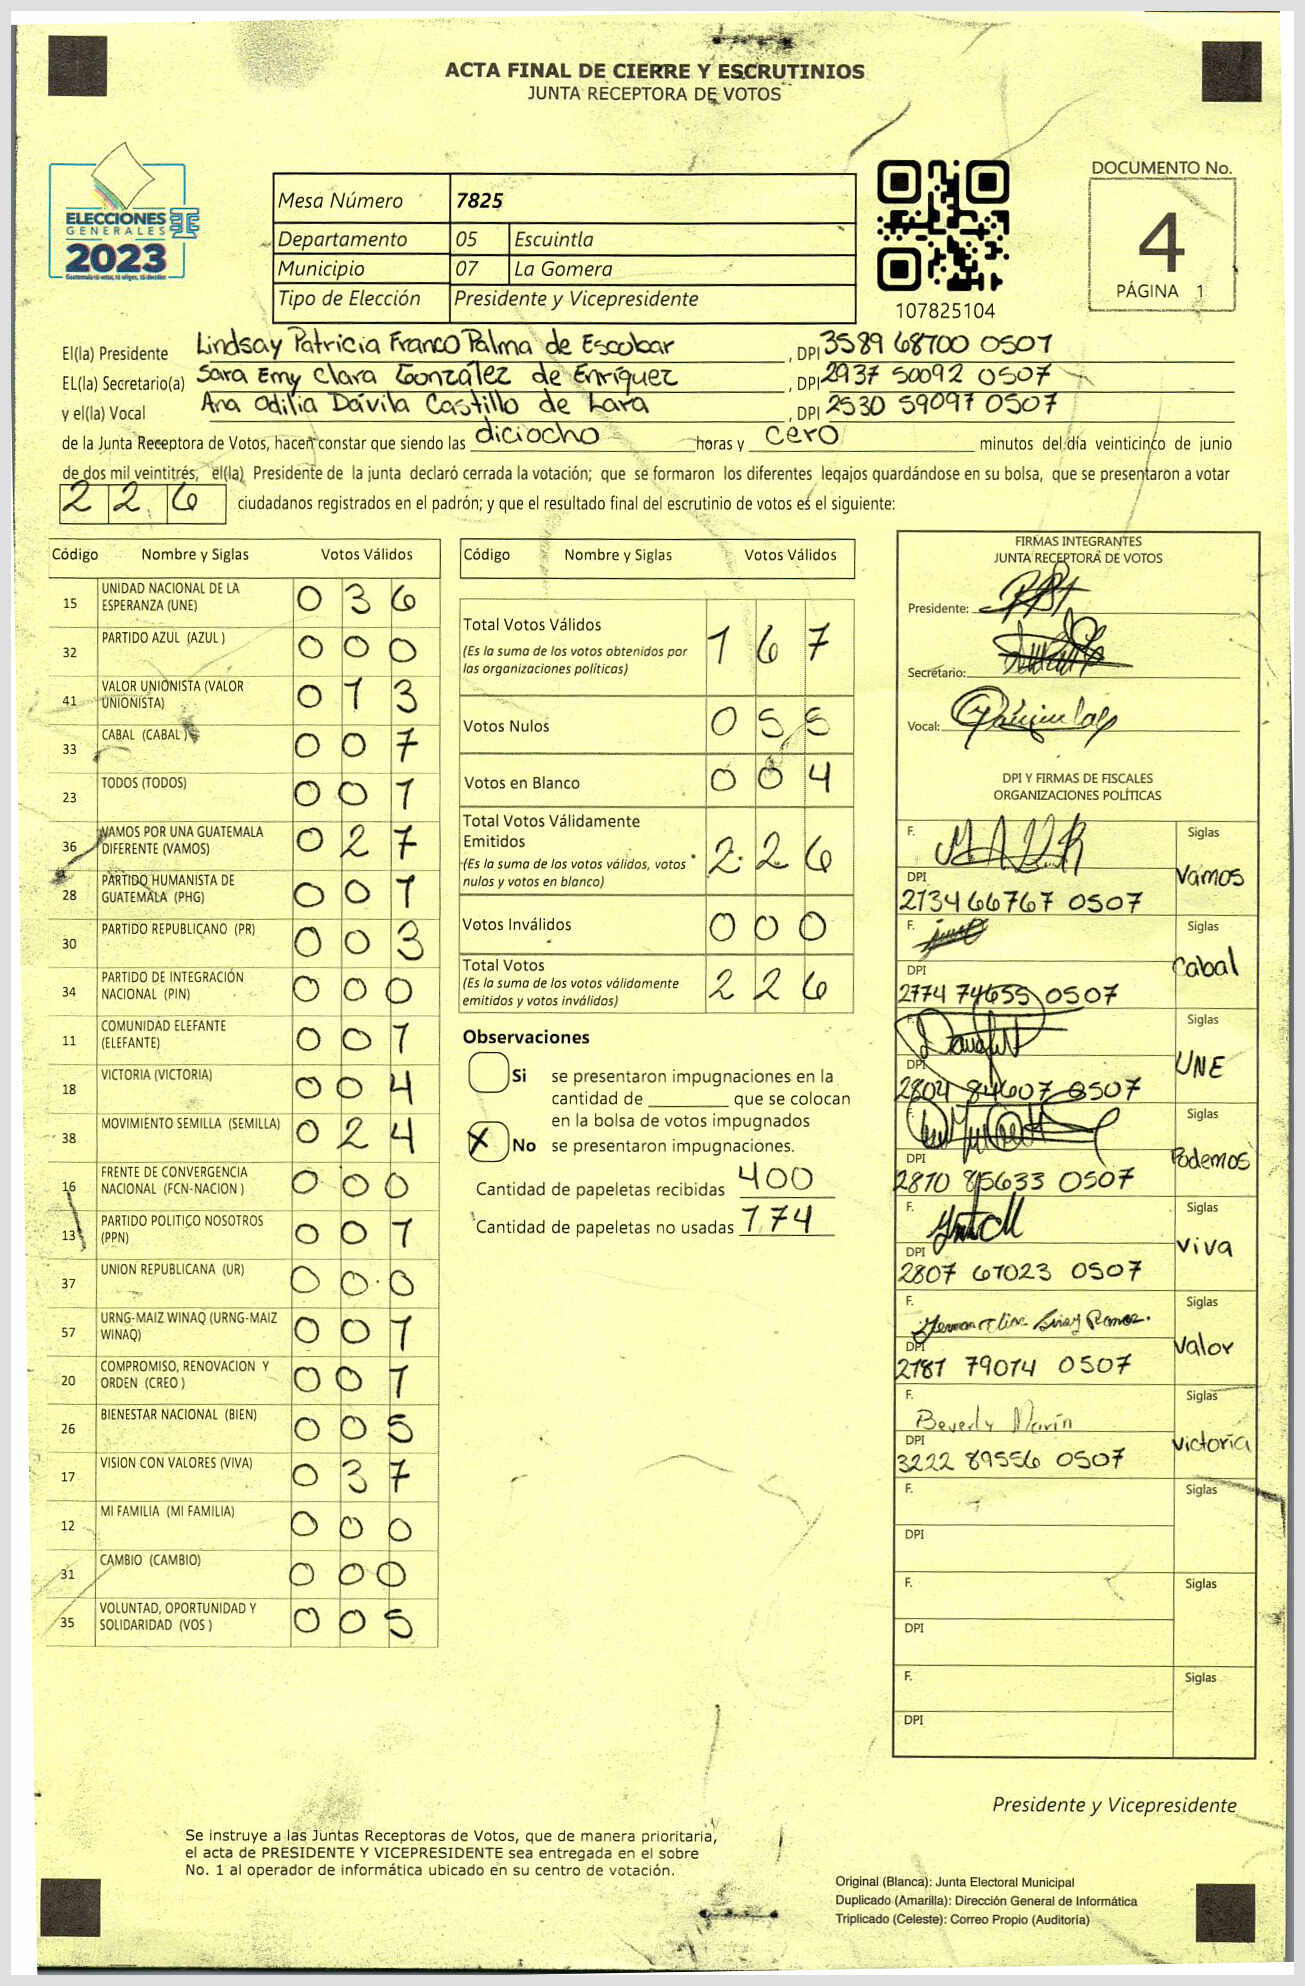 ACTA FINAL DE CIERRE Y ESCRUTINIOS
JUNTA RECEPTORA DE VOTOS
ELECCIONES
GENERALES
2023
Mesa Número 7825
Departamento 05 Escuintla
Municipio 07 La Gomera
Tipo de Elección Presidente y Vicepresidente
107825104
DOCUMENTO No.
4
PÁGINA 1
El(la) Presidente Lindsay Patricia Franco Palma de Escobar, DPI 3589 68700 0507
EL(la) Secretario(a) Sara Emy Clara González de Enríquez, DPI 2937 50092 0507
y el(la) Vocal Ana Odilia Dávila Castillo de Lara, DPI 2530 59097 0507
de la Junta Receptora de Votos, hacen constar que siendo las diciocho horas y cero minutos del día veinticinco de junio
de dos mil veintitrés, el(la) Presidente de la junta declaró cerrada la votación; que se formaron los diferentes legajos guardándose en su bolsa, que se presentaron a votar
226 ciudadanos registrados en el padrón; y que el resultado final del escrutinio de votos es el siguiente:
Código Nombre y Siglas Votos Válidos
15 UNIDAD NACIONAL DE LA ESPERANZA (UNE) 036
32 PARTIDO AZUL (AZUL ) 000
41 VALOR UNIONISTA (VALOR UNIONISTA) 013
33 CABAL (CABAL ) 007
23 TODOS (TODOS) 001
36 VAMOS POR UNA GUATEMALA DIFERENTE (VAMOS) 027
28 PARTIDO HUMANISTA DE GUATEMALA (PHG) 001
30 PARTIDO REPUBLICANO (PR) 003
34 PARTIDO DE INTEGRACIÓN NACIONAL (PIN) 000
11 COMUNIDAD ELEFANTE (ELEFANTE) 001
18 VICTORIA (VICTORIA) 004
38 MOVIMIENTO SEMILLA (SEMILLA) 024
16 FRENTE DE CONVERGENCIA NACIONAL (FCN-NACION ) 000
13 PARTIDO POLITICO NOSOTROS (PPN) 001
37 UNION REPUBLICANA (UR) 000
57 URNG-MAIZ WINAQ (URNG-MAIZ WINAQ) 001
20 COMPROMISO, RENOVACION Y ORDEN (CREO ) 001
26 BIENESTAR NACIONAL (BIEN) 005
17 VISION CON VALORES (VIVA) 037
12 MI FAMILIA (MI FAMILIA) 000
31 CAMBIO (CAMBIO) 000
35 VOLUNTAD, OPORTUNIDAD Y SOLIDARIDAD (VOS ) 005
Código Nombre y Siglas Votos Válidos
Total Votos Válidos 167
(Es la suma de los votos obtenidos por
las organizaciones políticas)
Votos Nulos 055
Votos en Blanco 004
Total Votos Válidamente
Emitidos 226
(Es la suma de los votos válidos, votos
nulos y votos en blanco)
Votos Inválidos 000
Total Votos 226
(Es la suma de los votos válidamente
emitidos y votos inválidos)
Observaciones
Si se presentaron impugnaciones en la
cantidad de ________ que se colocan
en la bolsa de votos impugnados
X No se presentaron impugnaciones.
Cantidad de papeletas recibidas 400
Cantidad de papeletas no usadas 174
FIRMAS INTEGRANTES
JUNTA RECEPTORA DE VOTOS
Presidente:
Secretario:
Vocal:
DPI Y FIRMAS DE FISCALES
ORGANIZACIONES POLÍTICAS
F. Siglas
DPI Vamos
2734 66767 0507
F. Siglas
DPI Cabal
2774 74655 0507
F. Siglas
DPI UNE
2804 84607 0507
F. Siglas
DPI Podemos
2870 85633 0507
F. Siglas
DPI Viva
2807 67023 0507
F. Siglas
DPI Valor
2787 79074 0507
F. Beverly Marín Siglas
DPI Victoria
3222 89556 0507
F. Siglas
DPI
F. Siglas
DPI
F. Siglas
DPI
Presidente y Vicepresidente
Se instruye a las Juntas Receptoras de Votos, que de manera prioritaria,
el acta de PRESIDENTE Y VICEPRESIDENTE sea entregada en el sobre
No. 1 al operador de informática ubicado en su centro de votación.
Original (Blanca): Junta Electoral Municipal
Duplicado (Amarilla): Dirección General de Informática
Triplicado (Celeste): Correo Propio (Auditoría)